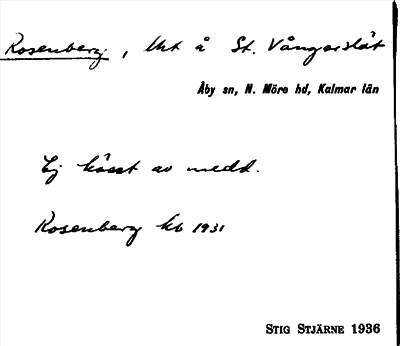 Rosenberg, lht å St. Vångerslät
Åby sn, N. Möre hd, Kalmar län
Ej känt av medd.
Rosenberg kb 1931
STIG STJÄRNE 1936